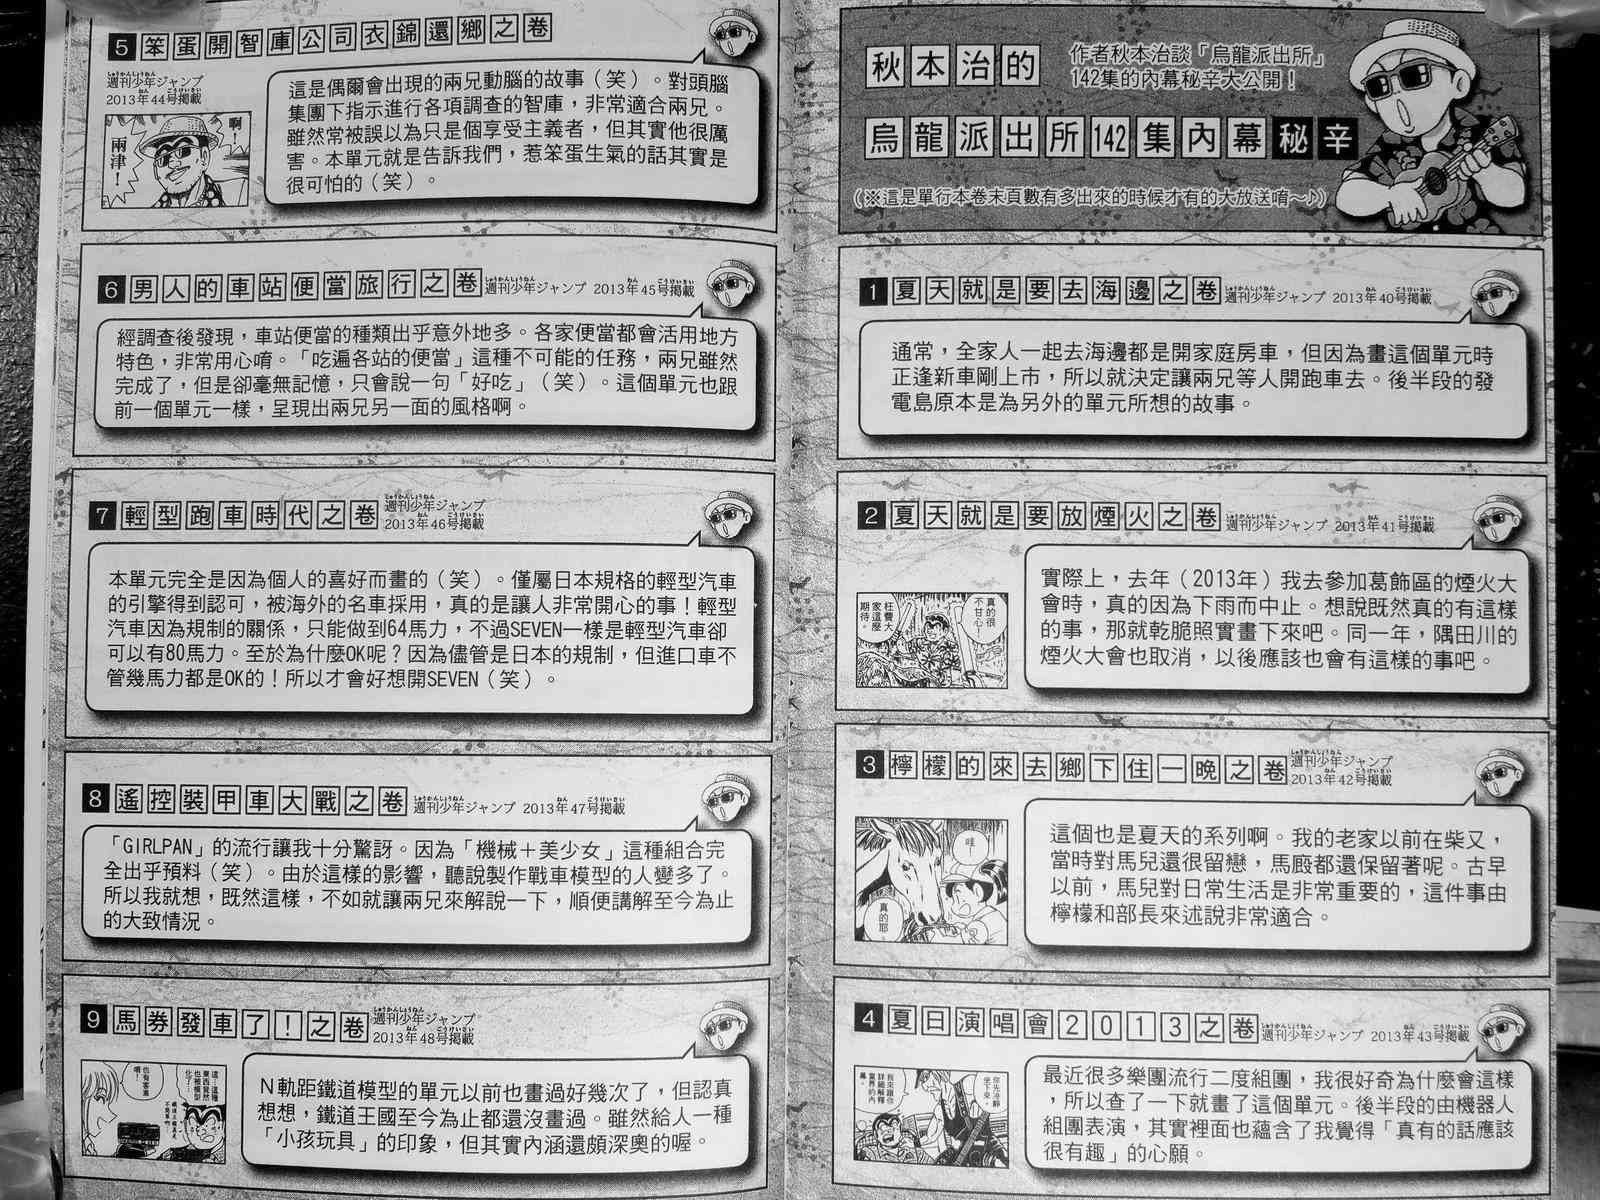 秋本治的
作者秋本治談「烏龍派出所」
142集的內幕秘辛大公開！
烏龍派出所142集內幕秘辛
(※這是單行本卷末頁數有多出來的時候才有的大放送唷～♪)
1 夏天就是要去海邊之卷 週刊少年ジャンプ 2013年40号掲載
通常，全家人一起去海邊都是開家庭房車，但因為畫這個單元時
正逢新車剛上市，所以就決定讓兩兄等人開跑車去。後半段的發
電島原本是為另外的單元所想的故事。
2 夏天就是要放煙火之卷 週刊少年ジャンプ 2013年41号掲載
真的很
不甘心！
枉費大
家這麼
期待。
實際上，去年（2013年）我去參加葛飾區的煙火大
會時，真的因為下雨而中止。想說既然真的有這樣
的事，那就乾脆照實畫下來吧。同一年，隅田川的
煙火大會也取消，以後應該也會有這樣的事吧。
3 檸檬的來去鄉下住一晚之卷 週刊少年ジャンプ
2013年42号掲載
哇！
真的耶。
這個也是夏天的系列啊。我的老家以前在柴又，
當時對馬兒還很留戀，馬廄都還保留著呢。古早
以前，馬兒對日常生活是非常重要的，這件事由
檸檬和部長來述說非常適合。
4 夏日演唱會2013之卷 週刊少年ジャンプ 2013年43号掲載
你先冷靜
坐下來。
我來跟你
詳細解釋
業界的內
幕。
最近很多樂團流行二度組團，我很好奇為什麼會這樣
，所以查了一下就畫了這個單元。後半段的由機器人
組團表演，其實裡面也蘊含了我覺得「真有的話應該
很有趣」的心願。
5 笨蛋開智庫公司衣錦還鄉之卷
週刊少年ジャンプ
2013年44号掲載
啊！
兩津！
這是偶爾會出現的兩兄動腦的故事（笑）。對頭腦
集團下指示進行各項調查的智庫，非常適合兩兄。
雖然常被誤以為只是個享受主義者，但其實他很厲
害。本單元就是告訴我們，惹笨蛋生氣的話其實是
很可怕的（笑）。
6 男人的車站便當旅行之卷 週刊少年ジャンプ 2013年45号掲載
經調查後發現，車站便當的種類出乎意外地多。各家便當都會活用地方
特色，非常用心唷。「吃遍各站的便當」這種不可能的任務，兩兄雖然
完成了，但是卻毫無記憶，只會說一句「好吃」（笑）。這個單元也跟
前一個單元一樣，呈現出兩兄另一面的風格啊。
7 輕型跑車時代之卷 週刊少年ジャンプ
2013年46号掲載
本單元完全是因為個人的喜好而畫的（笑）。僅屬日本規格的輕型汽車
的引擎得到認可，被海外的名車採用，真的是讓人非常開心的事！輕型
汽車因為規制的關係，只能做到64馬力，不過SEVEN一樣是輕型汽車卻
可以有80馬力。至於為什麼OK呢？因為儘管是日本的規制，但進口車不
管幾馬力都是OK的！所以才會好想開SEVEN（笑）。
8 遙控裝甲車大戰之卷 週刊少年ジャンプ 2013年47号掲載
「GIRLPAN」的流行讓我十分驚訝。因為「機械＋美少女」這種組合完
全出乎預料（笑）。由於這樣的影響，聽說製作戰車模型的人變多了。
所以我就想，既然這樣，不如就讓兩兄來解說一下，順便講解至今為止
的大致情況。
9 馬券發車了！之卷 週刊少年ジャンプ
2013年48号掲載
這…這種
東西竟然
也被模型
化了…
也有客車
唷！
Ｎ軌距鐵道模型的單元以前也畫過好幾次了，但認真
想想，鐵道王國至今為止都還沒畫過。雖然給人一種
「小孩玩具」的印象，但其實內涵還頗深奧的喔。